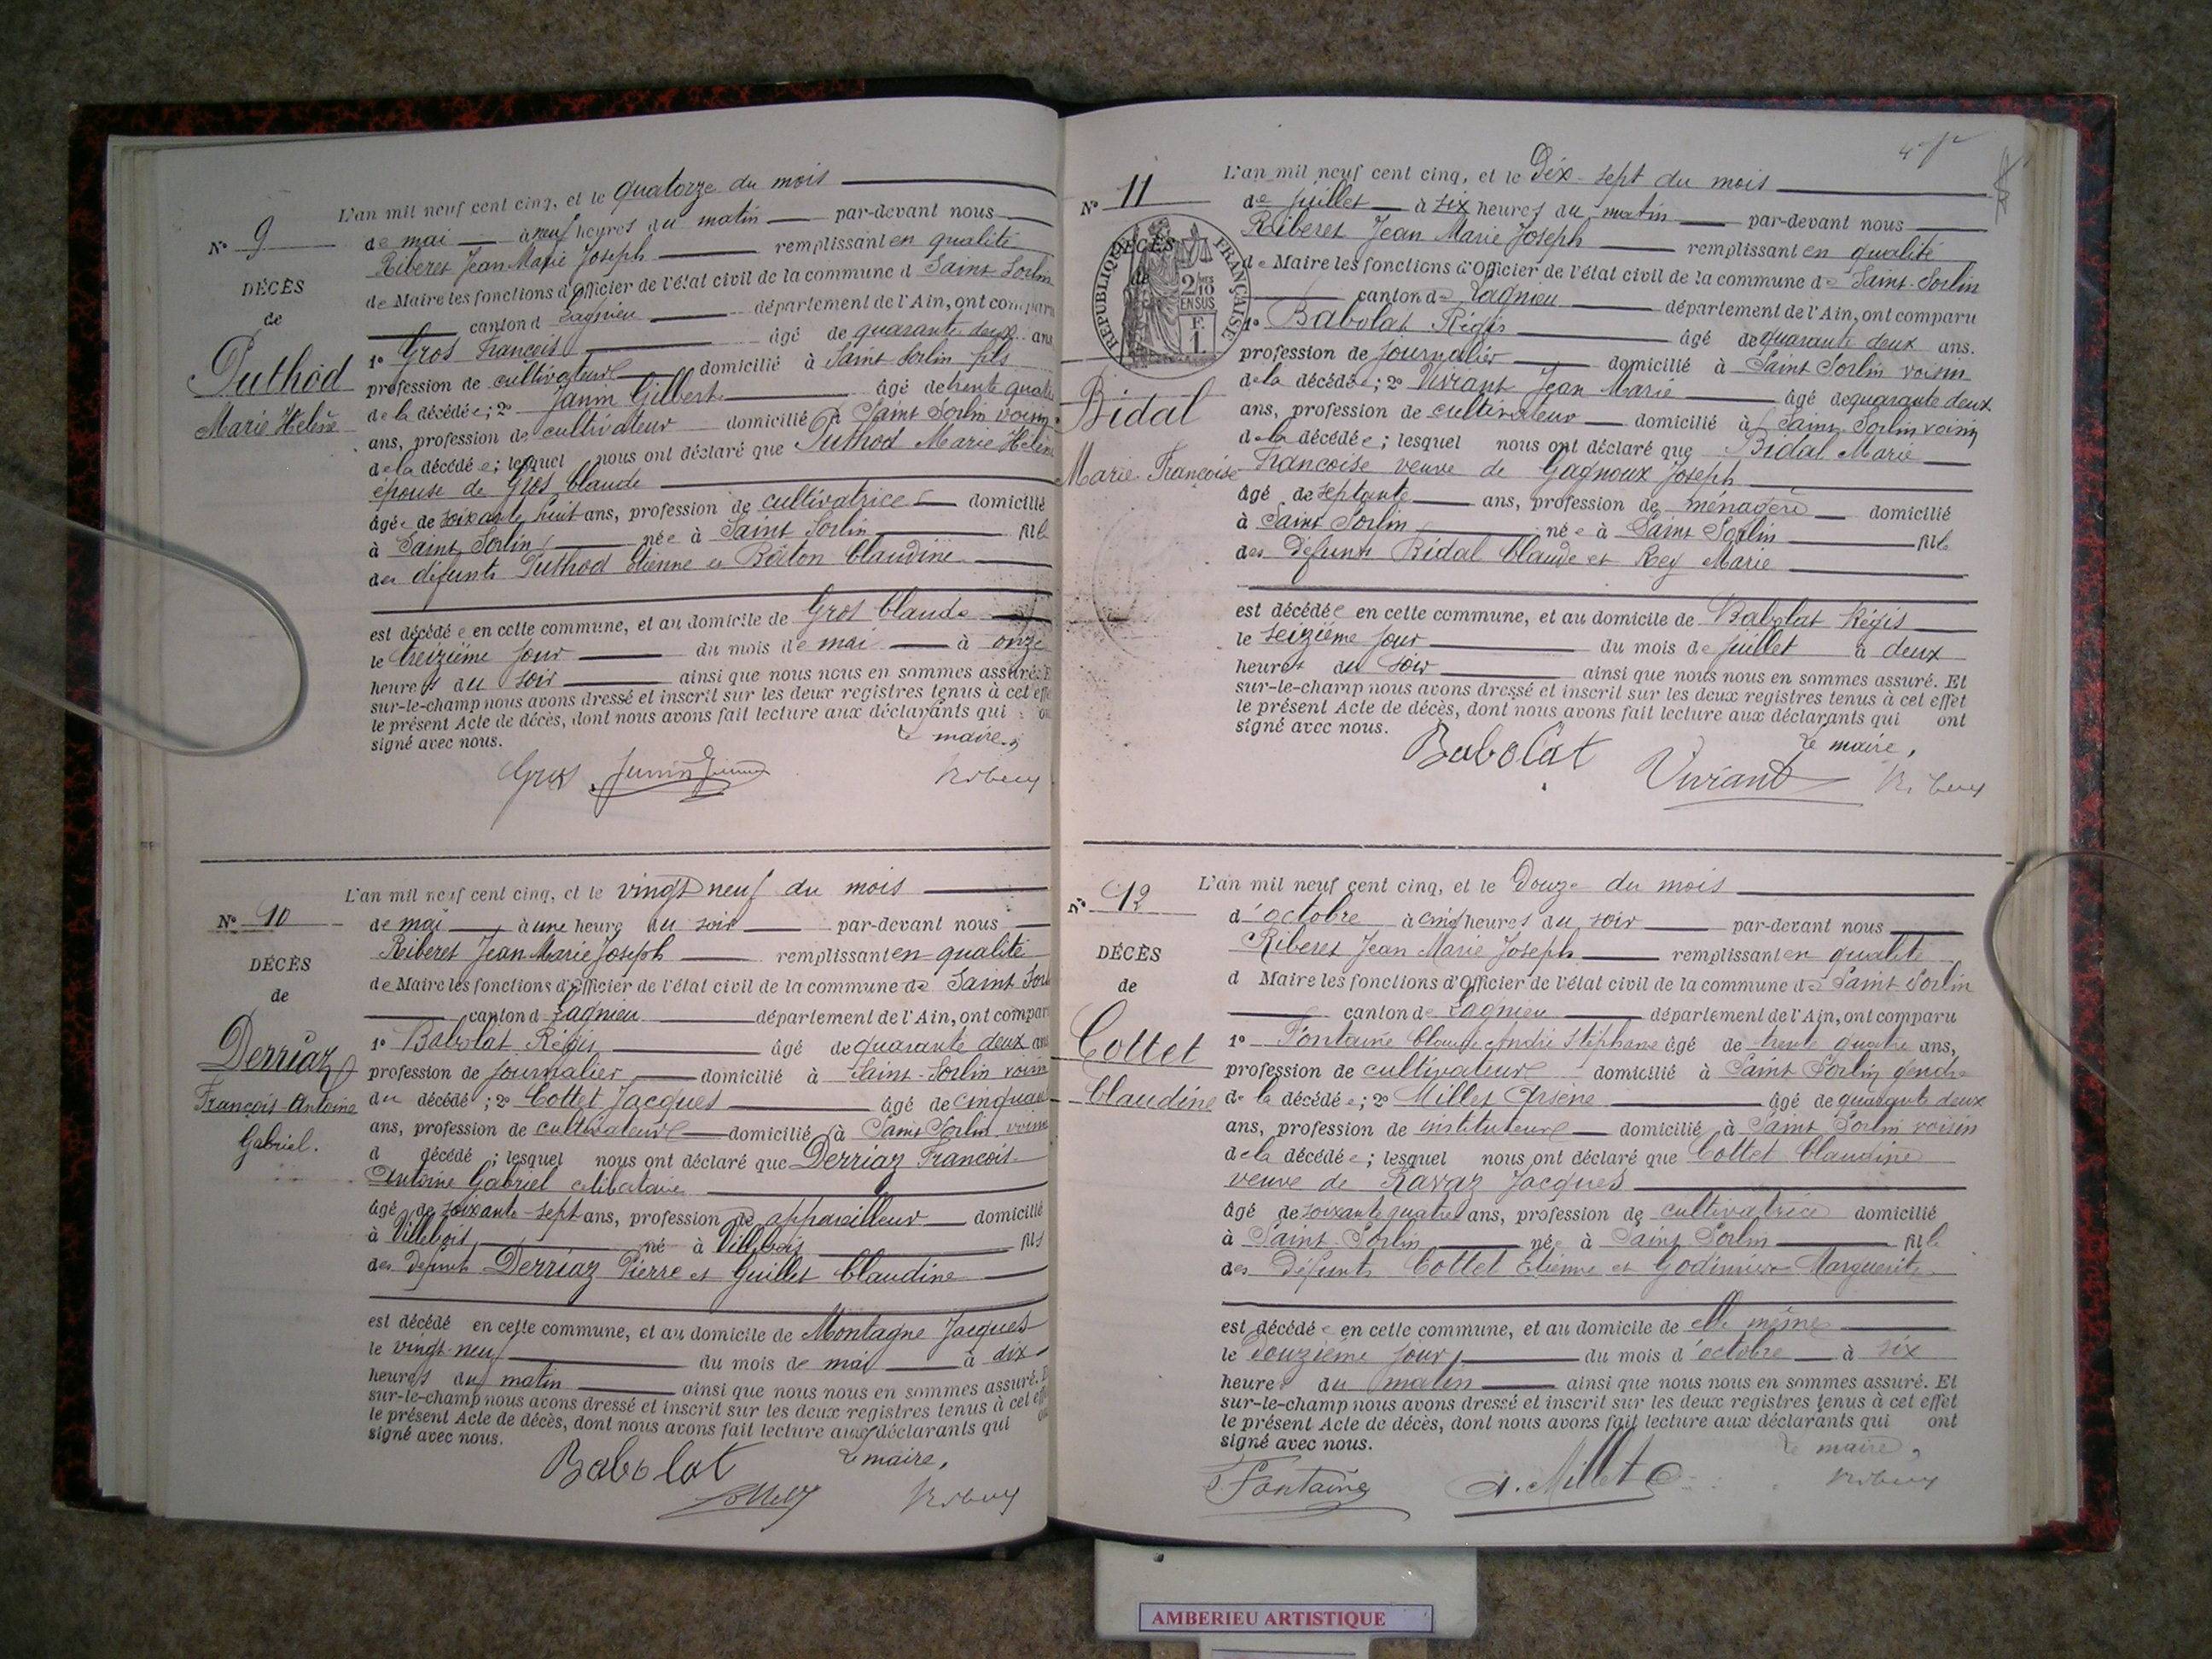 L'an mil neuf cent cinq, et le quatorze du mois
N° 9
de mai à neuf heures du matin par-devant nous
Riberet Jean Marie Joseph remplissant en qualité
DÉCÈS
de Maire les fonctions d'Officier de l'état civil de la commune d Saint Sorlin
de
canton d Lagnieu département de l'Ain, ont comparu
1° Gros François âgé de quarante deux ans
Puthod
profession de cultivateur domicilié à Saint Sorlin fils
Marie Helène
de la décédée; 2° Janin Gilbert âgé de trente quatre
ans, profession de cultivateur domicilié à Saint Sorlin voisin
de la décédée; lesquel nous ont déclaré que Puthod Marie Helène
épouse de Gros Claude
âgée de soixante huit ans, profession de cultivatrice domicilié
à Saint Sorlin née à Saint Sorlin fille
des défunts Puthod Etienne et Berlon Claudine
est décédée en cette commune, et au domicile de Gros Claude
le treizième jour du mois de mai à onze
heures du soir ainsi que nous nous en sommes assuré. Et
sur-le-champ nous avons dressé et inscrit sur les deux registres tenus à cet effet
le présent Acte de décès, dont nous avons fait lecture aux déclarants qui ont
signé avec nous.
Le maire,
Gros Riberet
L'an mil neuf cent cinq, et le vingt neuf du mois
N° 10
de mai à une heure du soir par-devant nous
Riberet Jean Marie Joseph remplissant en qualité
DÉCÈS
de Maire les fonctions d'Officier de l'état civil de la commune de Saint Sorl
de
canton d Lagnieu département de l'Ain, ont compar
1° Babolat Régis âgé de quarante deux ans
Derriaz
profession de journalier domicilié à Saint-Sorlin voisin
François Antoine
du décédé; 2° Cottet Jacques âgé de cinquante
Gabriel.
ans, profession de cultivateur domicilié à Saint Sorlin voisin
d décédé; lesquel nous ont déclaré que Derriaz François
Antoine Gabriel célibataire
âgé de soixante-sept ans, profession de appareilleur domicilié
à Villebois né à Villebois fils
des défunts Derriaz Pierre et Guillet Claudine
est décédé en cette commune, et au domicile de Montagne Jacques
le vingt-neuf du mois de mai à dix
heures du matin ainsi que nous nous en sommes assuré. E
sur-le-champ nous avons dressé et inscrit sur les deux registres tenus à cet effe
le présent Acte de décès, dont nous avons fait lecture aux déclarants qui ont
signé avec nous.
Le maire,
Babolat
Cottet Riberet
L'an mil neuf cent cinq, et le Dix-sept du mois
N° 11
de juillet à six heures du matin par-devant nous
Riberet Jean Marie Joseph remplissant en qualité
DÉCÈS
de
RÉPUBLIQUE FRANÇAISE
2/10 EN SUS
F. 1
de Maire les fonctions d'Officier de l'état civil de la commune de Saint-Sorlin
canton de Lagnieu département de l'Ain, ont comparu
1° Babolat Régis âgé de quarante deux ans.
profession de journalier domicilié à Saint Sorlin voisin
Bidal
de la décédée; 2° Vivrant Jean Marie âgé de quarante deux
ans, profession de cultivateur domicilié à Saint-Sorlin voisin
de la décédée; lesquel nous ont déclaré que Bidal Marie
Marie Françoise
Françoise veuve de Gagnoux Joseph
âgé de septante ans, profession de ménagère domicilié
à Saint Sorlin née à Saint Sorlin fille
des défunts Bidal Claude et Rey Marie
est décédée en cette commune, et au domicile de Babolat Régis
le seizième jour du mois de juillet à deux
heures du soir ainsi que nous nous en sommes assuré. Et
sur-le-champ nous avons dressé et inscrit sur les deux registres tenus à cet effet
le présent Acte de décès, dont nous avons fait lecture aux déclarants qui ont
signé avec nous.
Le maire,
Babolat
Vivrant Riberet
L'an mil neuf cent cinq, et le Douze du mois
N° 12
d'octobre à cinq heures du soir par-devant nous
Riberet Jean Marie Joseph remplissant en qualité
DÉCÈS
d Maire les fonctions d'Officier de l'état civil de la commune de Saint Sorlin
de
canton de Lagnieu département de l'Ain, ont comparu
1° Fontaine Claude André Stéphane âgé de trente quatre ans,
Cottet
profession de cultivateur domicilié à Saint Sorlin gendre
Claudine
de la décédée; 2° Millet Arsène âgé de quarante deux
ans, profession de instituteur domicilié à Saint Sorlin voisin
de la décédée; lesquel nous ont déclaré que Cottet Claudine
veuve de Ravaz Jacques
âgé de soixante quatre ans, profession de cultivatrice domicilié
à Saint-Sorlin née à Saint Sorlin fille
des défunts Cottet Etienne et Marguerite
est décédée en cette commune, et au domicile de elle même
le douzième jour du mois d'octobre à six
heures du matin ainsi que nous nous en sommes assuré. Et
sur-le-champ nous avons dressé et inscrit sur les deux registres tenus à cet effet
le présent Acte de décès, dont nous avons fait lecture aux déclarants qui ont
signé avec nous.
Le maire,
Fontaine A. Millet Riberet
AMBERIEU ARTISTIQUE